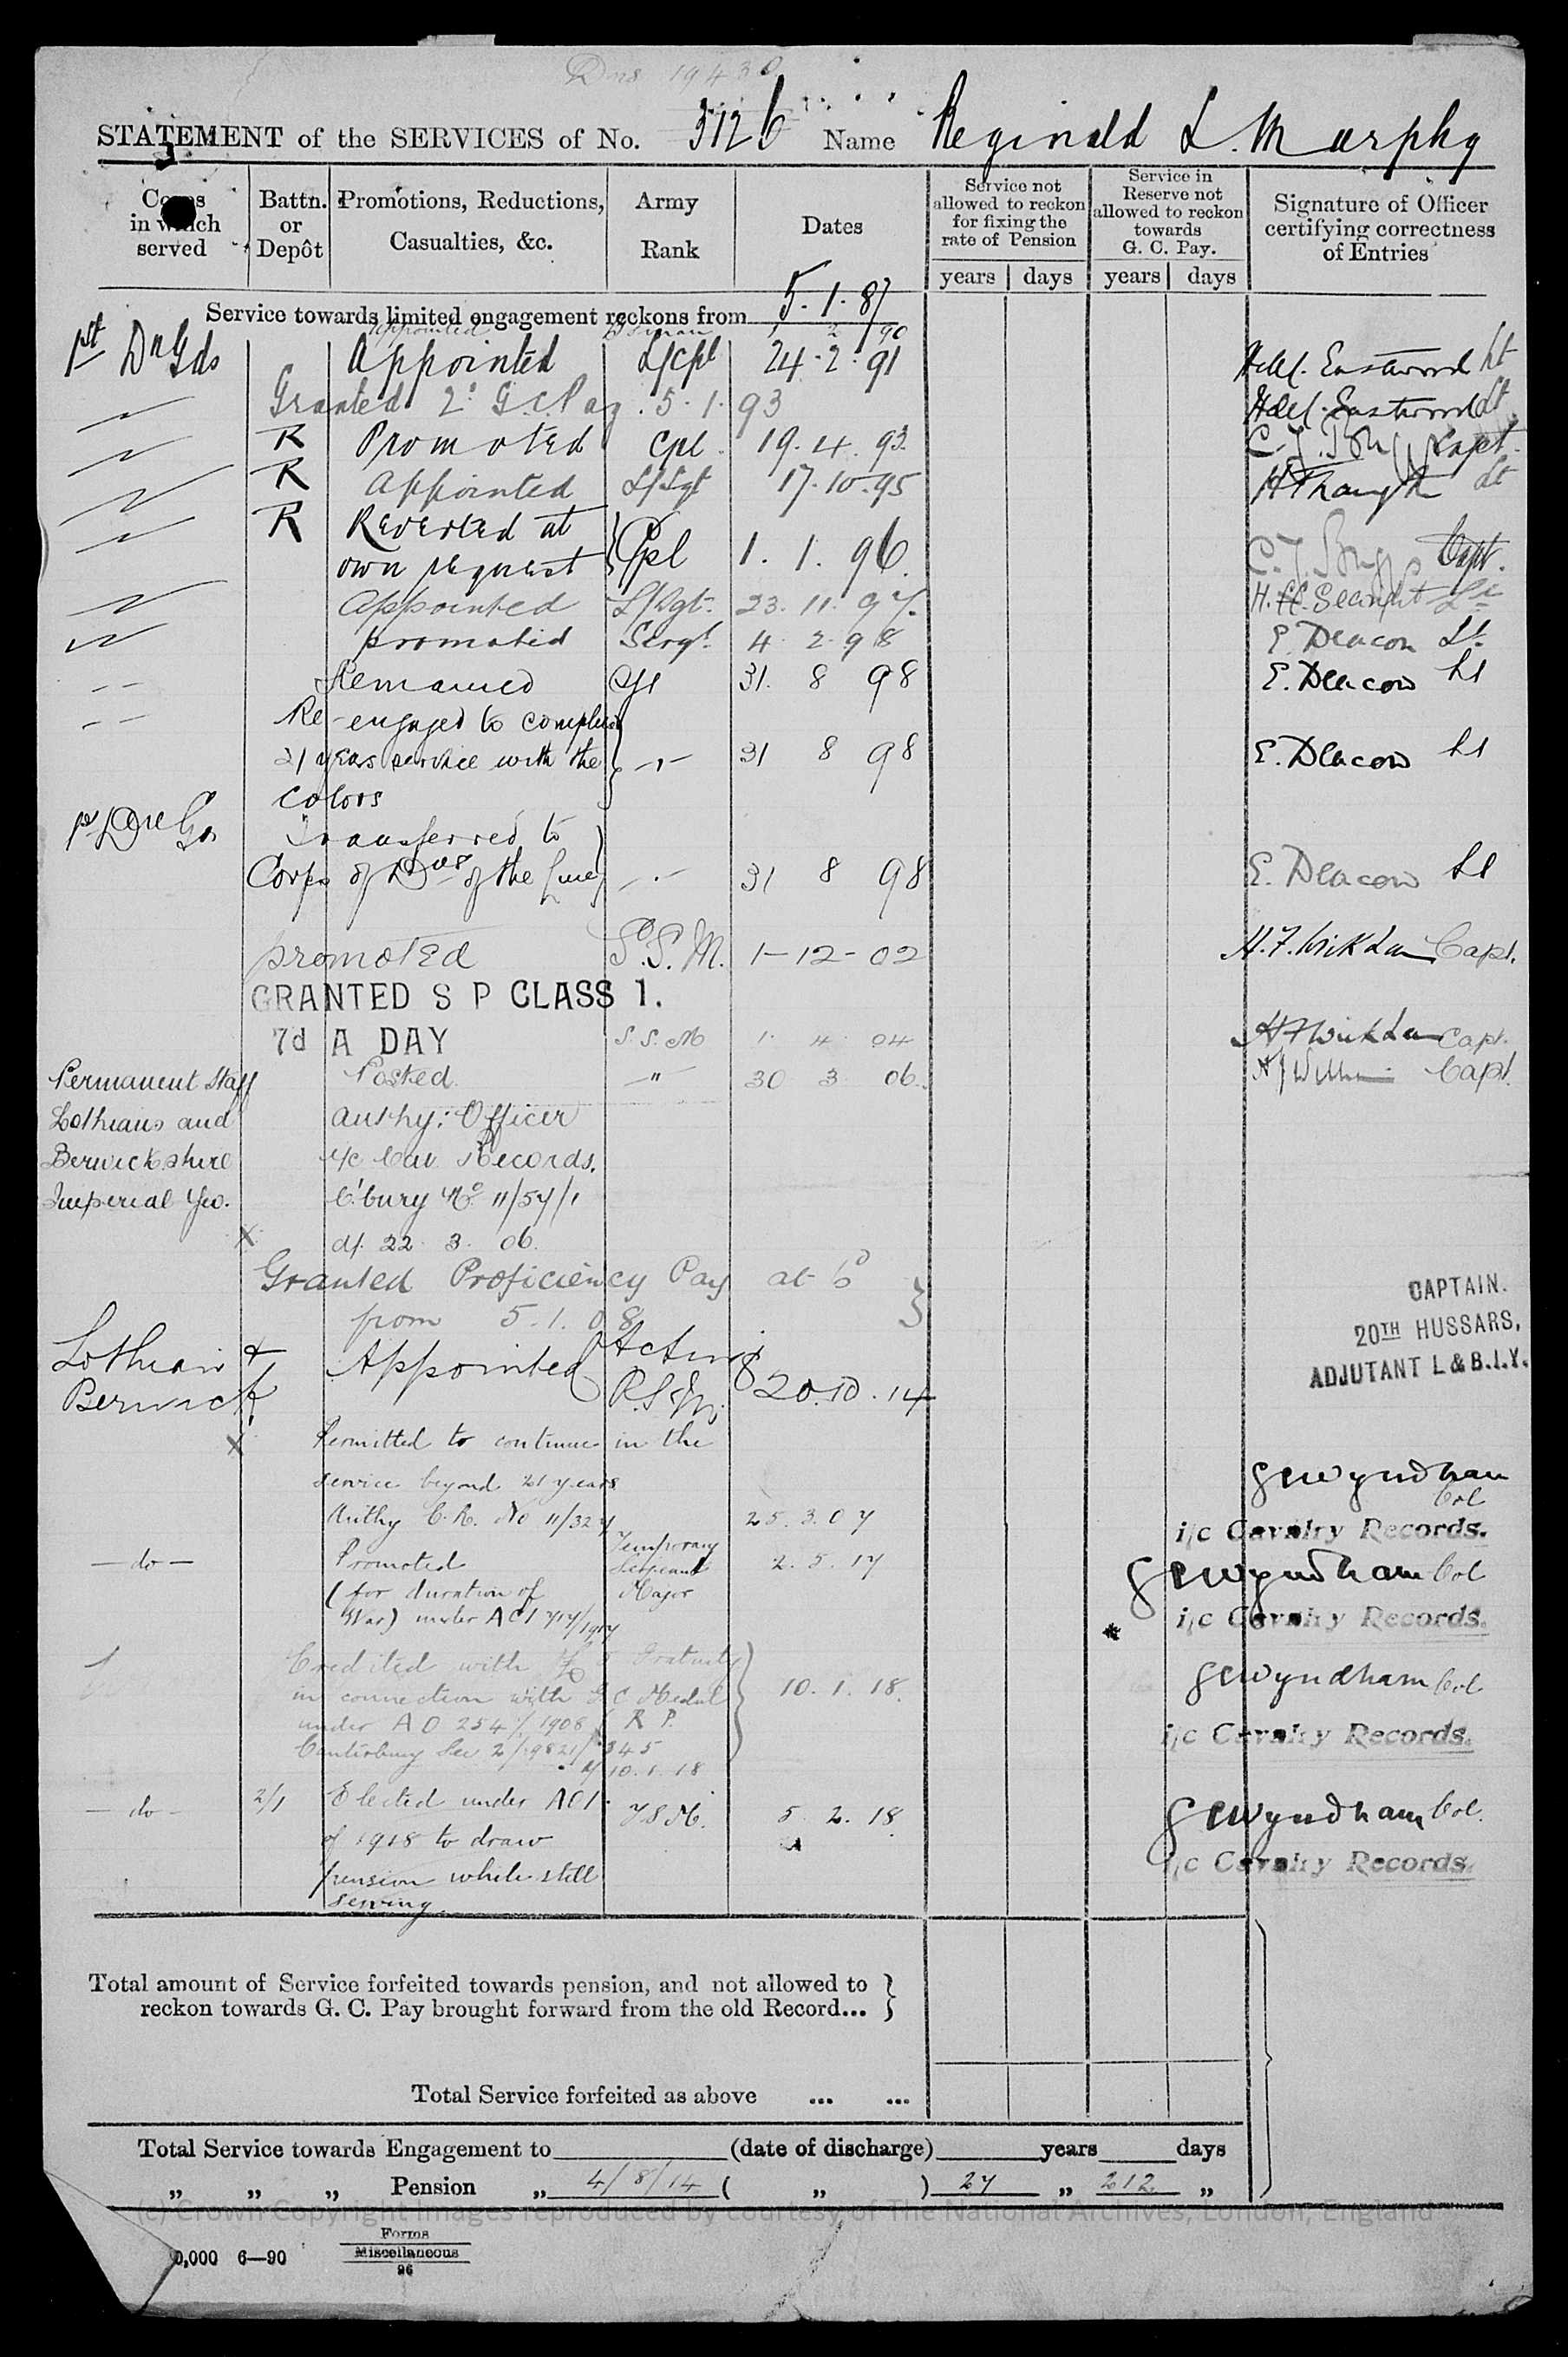 Dns 19430
STATEMENT of the SERVICES of No. 3126 Name Reginald L. Murphy
3
Corps in which served
Battn. or Depôt
Promotions, Reductions, Casualties, &c.
Army Rank
Dates
Service not allowed to reckon for fixing the rate of Pension
years days
Service in Reserve not allowed to reckon towards G. C. Pay.
years days
Signature of Officer certifying correctness of Entries
Service towards limited engagement reckons from 5.1.87
Appointed 2 90
1st Dn Gds Appointed L/Cpl 24-2-91 Eastwood Lt
Granted 2d G.C. Pay. 5.1.93 Eastwood Lt
R Promoted Cpl. 19.4.93. Capt.
R Appointed L/Sgt 17.10.95 Lt
R Reverted at
own request } Cpl 1.1.96. Capt.
Appointed L/Sgt. 23.11.97.
promoted Sergt. 4.2.98 E. Deacon Lt.
31. 8 98 E. Deacon Lt
Re-engaged to complete
21 years service with the } 31 8 98 E. Deacon Lt
Colors
Transferred to
Corps of Dns of the Line } 31 8 98 E. Deacon Lt
promoted S.S.M. 1-12-02 Capt.
GRANTED S P CLASS 1.
7d A DAY S.S.M 1. 4 04 Capt.
Permanent Staff Posted. " 30 3 06. Capt.
Lothians and Authy: Officer
Berwickshire i/c Cav Records.
Imperial Yeo. C'bury No 11/57/1
x d/. 22. 3. 06.
Granted Proficiency Pay at 6d }
from 5.1.08
CAPTAIN.
20TH HUSSARS,
ADJUTANT L & B.I.Y.
Lothian & Appointed Acting
Berwick R.S.M. 20.10.14
x Permitted to continue in the
service beyond 21 years gewyndham
Authy C.R. No 11/327 25.3.07 Col
i/c Cavalry Records.
- do - Promoted Temporary 2.5.17 gewyndham Col
(for duration of Sergeant
War) under ACI 717/1917 Major
i/c Cavalry Records.
Credited with £5 Gratuity
in connection with G C Medal } 10.1.18. gewyndham Col
under A O 254/1908 R P.
i/c Cavalry Records.
Canterbury Sec 2/19821/345
d/ 10.1.18
- do - 2/1 Elected under ACI. T.S.M. 5.2.18 gewyndham Col.
of 1918 to draw
pension while still
i/c Cavalry Records.
serving.
Total amount of Service forfeited towards pension, and not allowed to
reckon towards G. C. Pay brought forward from the old Record... }
Total Service forfeited as above ... ...
Total Service towards Engagement to (date of discharge) years days
„ „ „ Pension „ 4/8/14 ( „ ) 27 „ 212 „
(c) Crown Copyright Images reproduced by courtesy of The National Archives, London, England
0,000 6—90
Forms
Miscellaneous
26